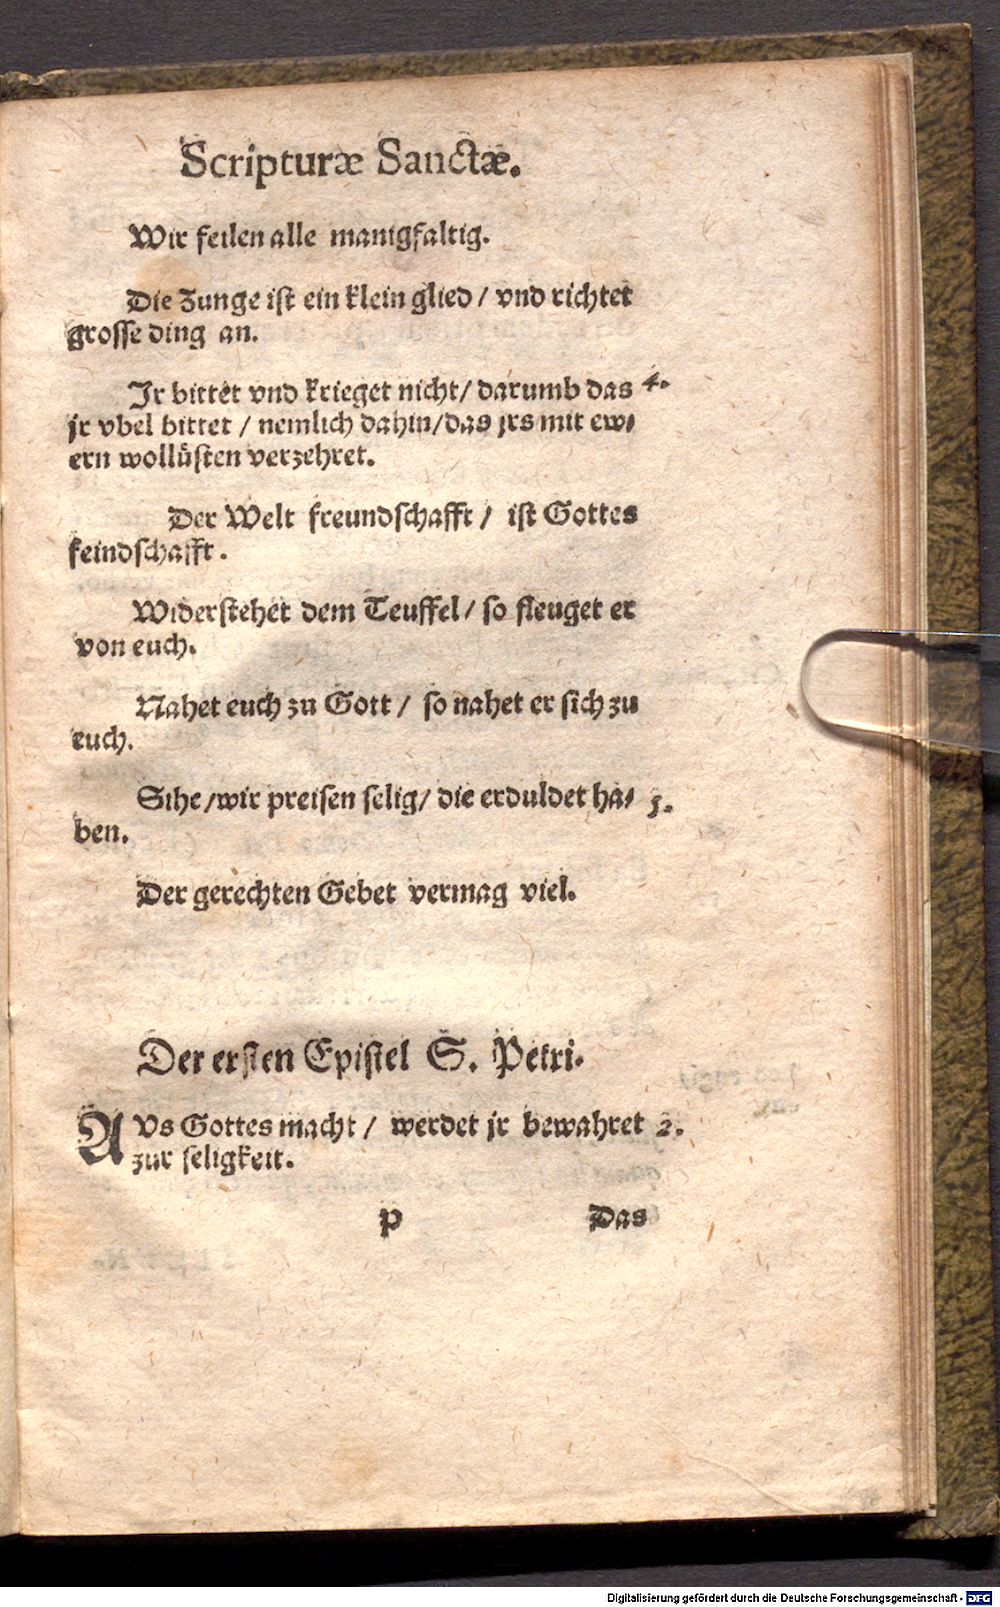 Scripturæ Sanctæ.
Wir feilen alle manigfaltig.
Die Zunge ist ein klein glied / vnd richtet
grosse ding an.
Jr bittet vnd krieget nicht / darumb das 4.
jr vbel bittet / nemlich dahin / das jrs mit ew⸗
ern wollüsten verzehret.
Der Welt freundschafft / ist Gottes
feindschafft.
Widerstehet dem Teuffel / so fleuget er
von euch.
Nahet euch zu Gott / so nahet er sich zu
euch.
Sihe / wir preisen selig / die erduldet ha⸗ 5.
ben.
Der gerechten Gebet vermag viel.
Der ersten Epistel S. Petri.
AVs Gottes macht / werdet jr bewahret 2.
zur seligkeit.
P Das
Digitalisierung gefördert durch die Deutsche Forschungsgemeinschaft - DFG